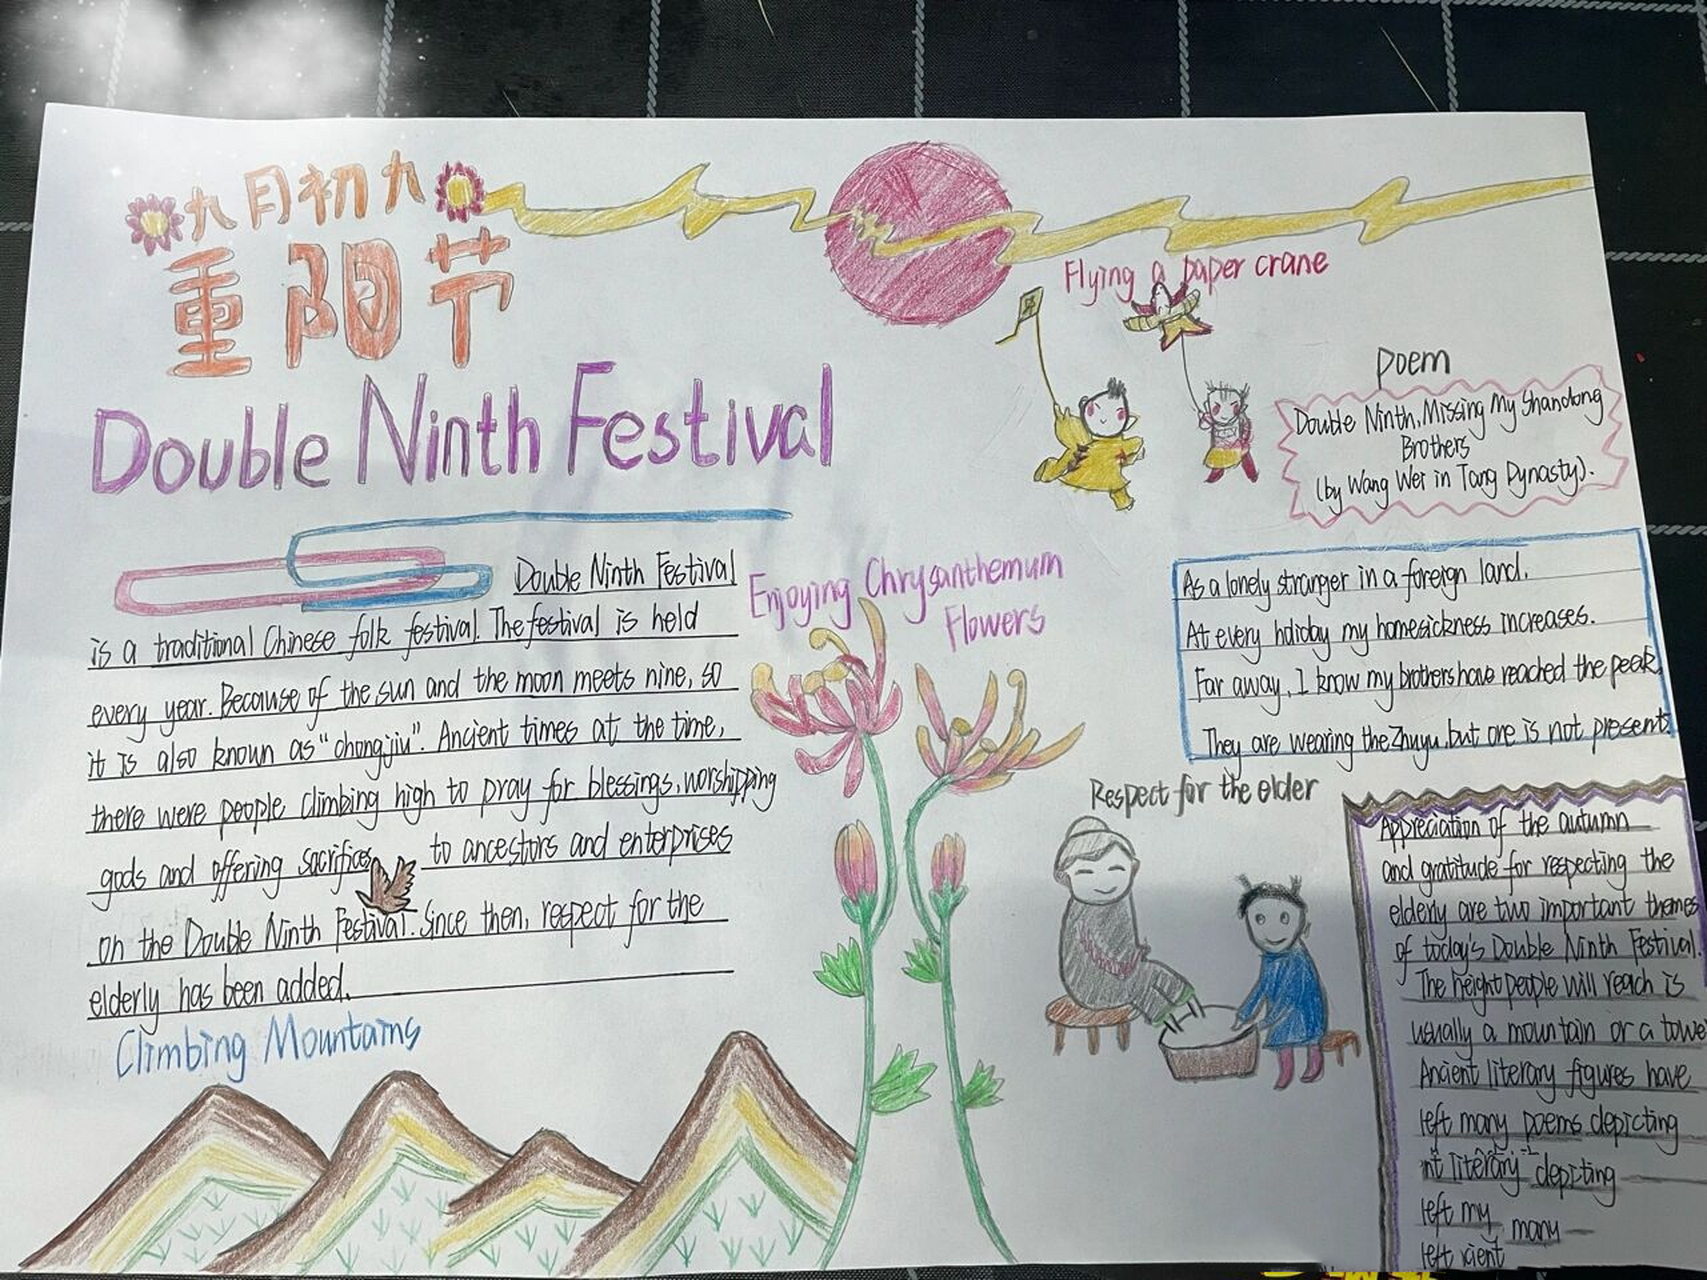 九月初九
重阳节
Double Ninth Festival
Double Ninth Festival
is a traditional Chinese folk festival. The festival is held
every year. Because of the sun and the moon meets nine, so
it is also known as "chongjiu". Ancient times at the time,
there were people climbing high to pray for blessings, worshipping
gods and offering sacrifices to ancestors and enterprises
on the Double Ninth Festival. Since then, respect for the
elderly has been added.
Climbing Mountains
Enjoying Chrysanthemum
Flowers
Flying a paper crane
Poem
Double Ninth, Missing My Shandong
Brothers
(by Wang Wei in Tang Dynasty).
As a lonely stranger in a foreign land.
At every holiday my homesickness increases.
Far away, I know my brothers have reached the peak,
They are wearing the Zhuyu, but one is not present
Respect for the elder
Appreciation of the autumn
and gratitude for respecting the
elderly are two important themes
of today's Double Ninth Festival.
The height people will reach is
usually a mountain or a towe
Ancient literary figures have
left many poems depicting
nt literary depicting
left my many
left